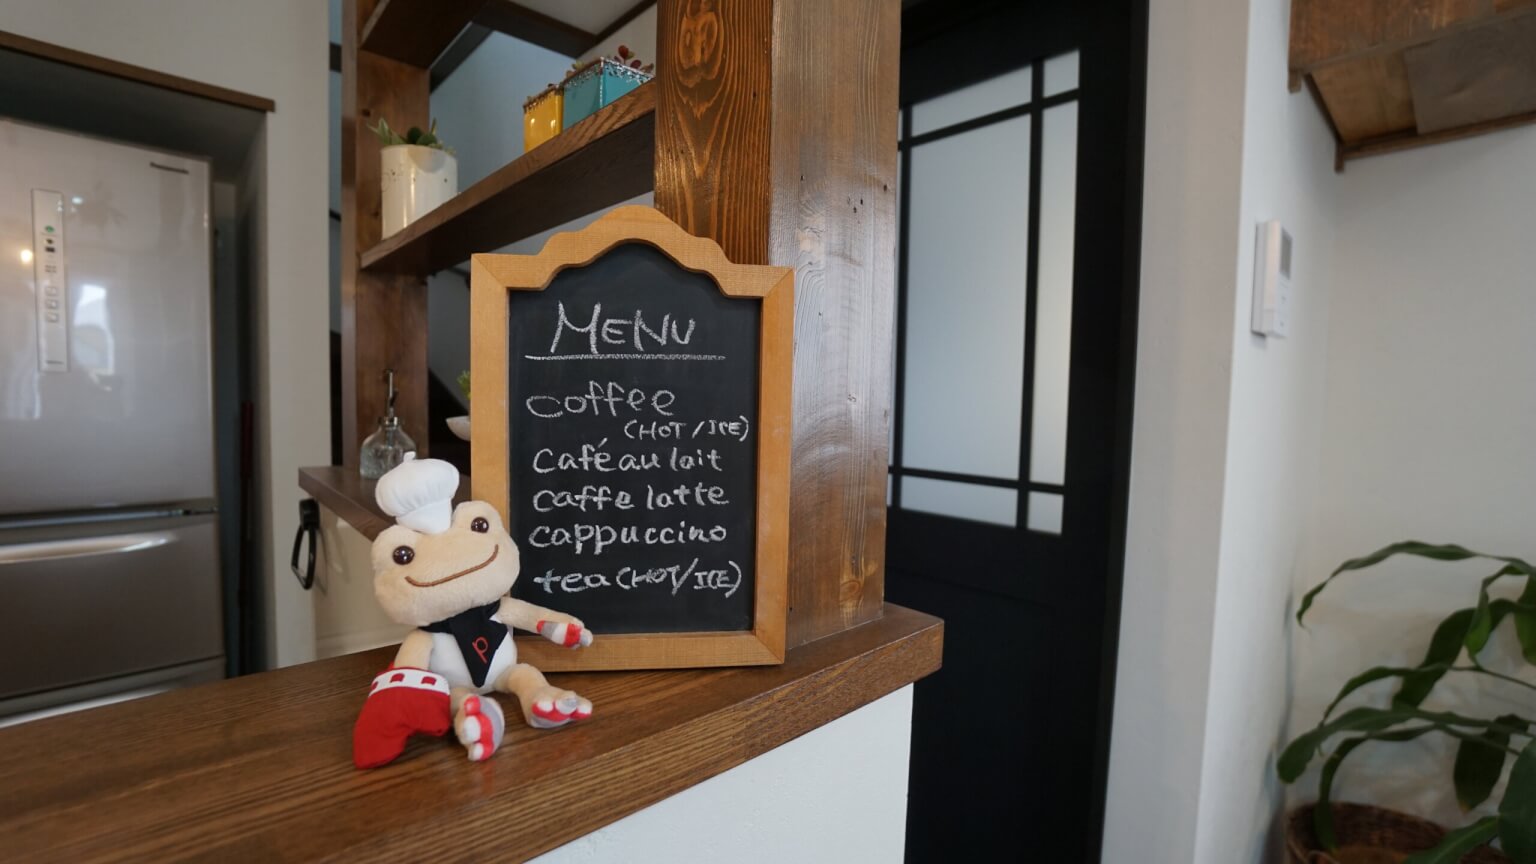 Panasonic
MENU
coffee
(HOT/ICE)
Café au lait
caffe latte
cappuccino
tea (HOT/ICE)
p